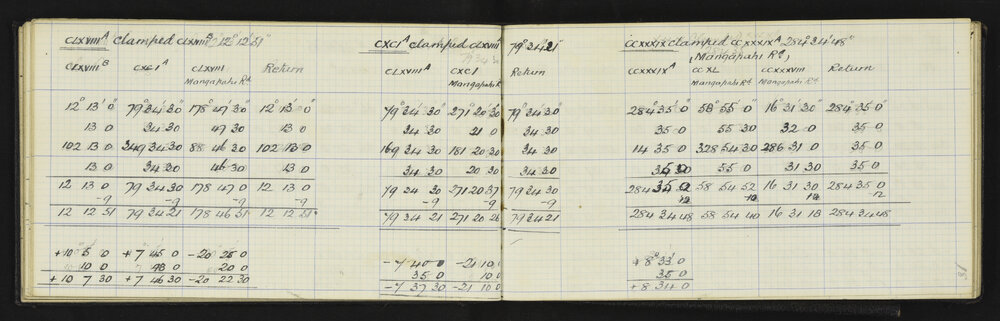 CLXVIII A clamped CLXVIII B 12° 12' 51"
CLXVIII B CXCI A CLXVIII Return
Mangapahi Rd
12° 13' 0" 79° 34' 30" 178° 47' 30" 12° 13' 0"
13 0 34 30 47 30 13 0
102 13 0 349 34 30 88 46 30 102 13 0
13 0 34 30 46 30 13 0
12 13 0 79 34 30 178 47 0 12 13 0
-9 -9 -9 -9
12 12 51 79 34 21 178 46 51 12 12 51
+10° 5 0 +7 45 0 -20 25 0
10 0 48 0 20 0
+10 7 30 +7 46 30 -20 22 30
CXCI A clamped CLXVIII 79° 34' 21"
CLXVIII A CXCI Return
Mangapahi R
79° 34' 30" 271° 20' 30" 79° 34' 30"
34 30 21 0 34 30
169 34 30 181 20 30 34 30
34 30 20 30 34 30
79 34 30 271 20 37 79 34 30
-9 -9 -9
79 34 21 271 20 28 79 34 21
-7 40 0 -21 10 0
35 0 10 0
-7 37 30 -21 10 0
CCXXXIX clamped CCXXXIX A 284° 34' 48"
(Mangapahi Rd)
CCXXXIX A CCXL CCXXXVIII Return
Mangapahi Rd Mangapahi Rd
284° 35' 0" 58° 55' 0" 16° 31' 30" 284° 35' 0"
35 0 55 30 32 0 35 0
14 35 0 328 54 30 286 31 0 35 0
35 30 55 0 31 30 35 0
284 35 0 58 54 52 16 31 30 284 35 0
12 12 12 -12
284 34 48 58 54 40 16 31 18 284 34 48
+8° 33' 0
35 0
+8 34 0